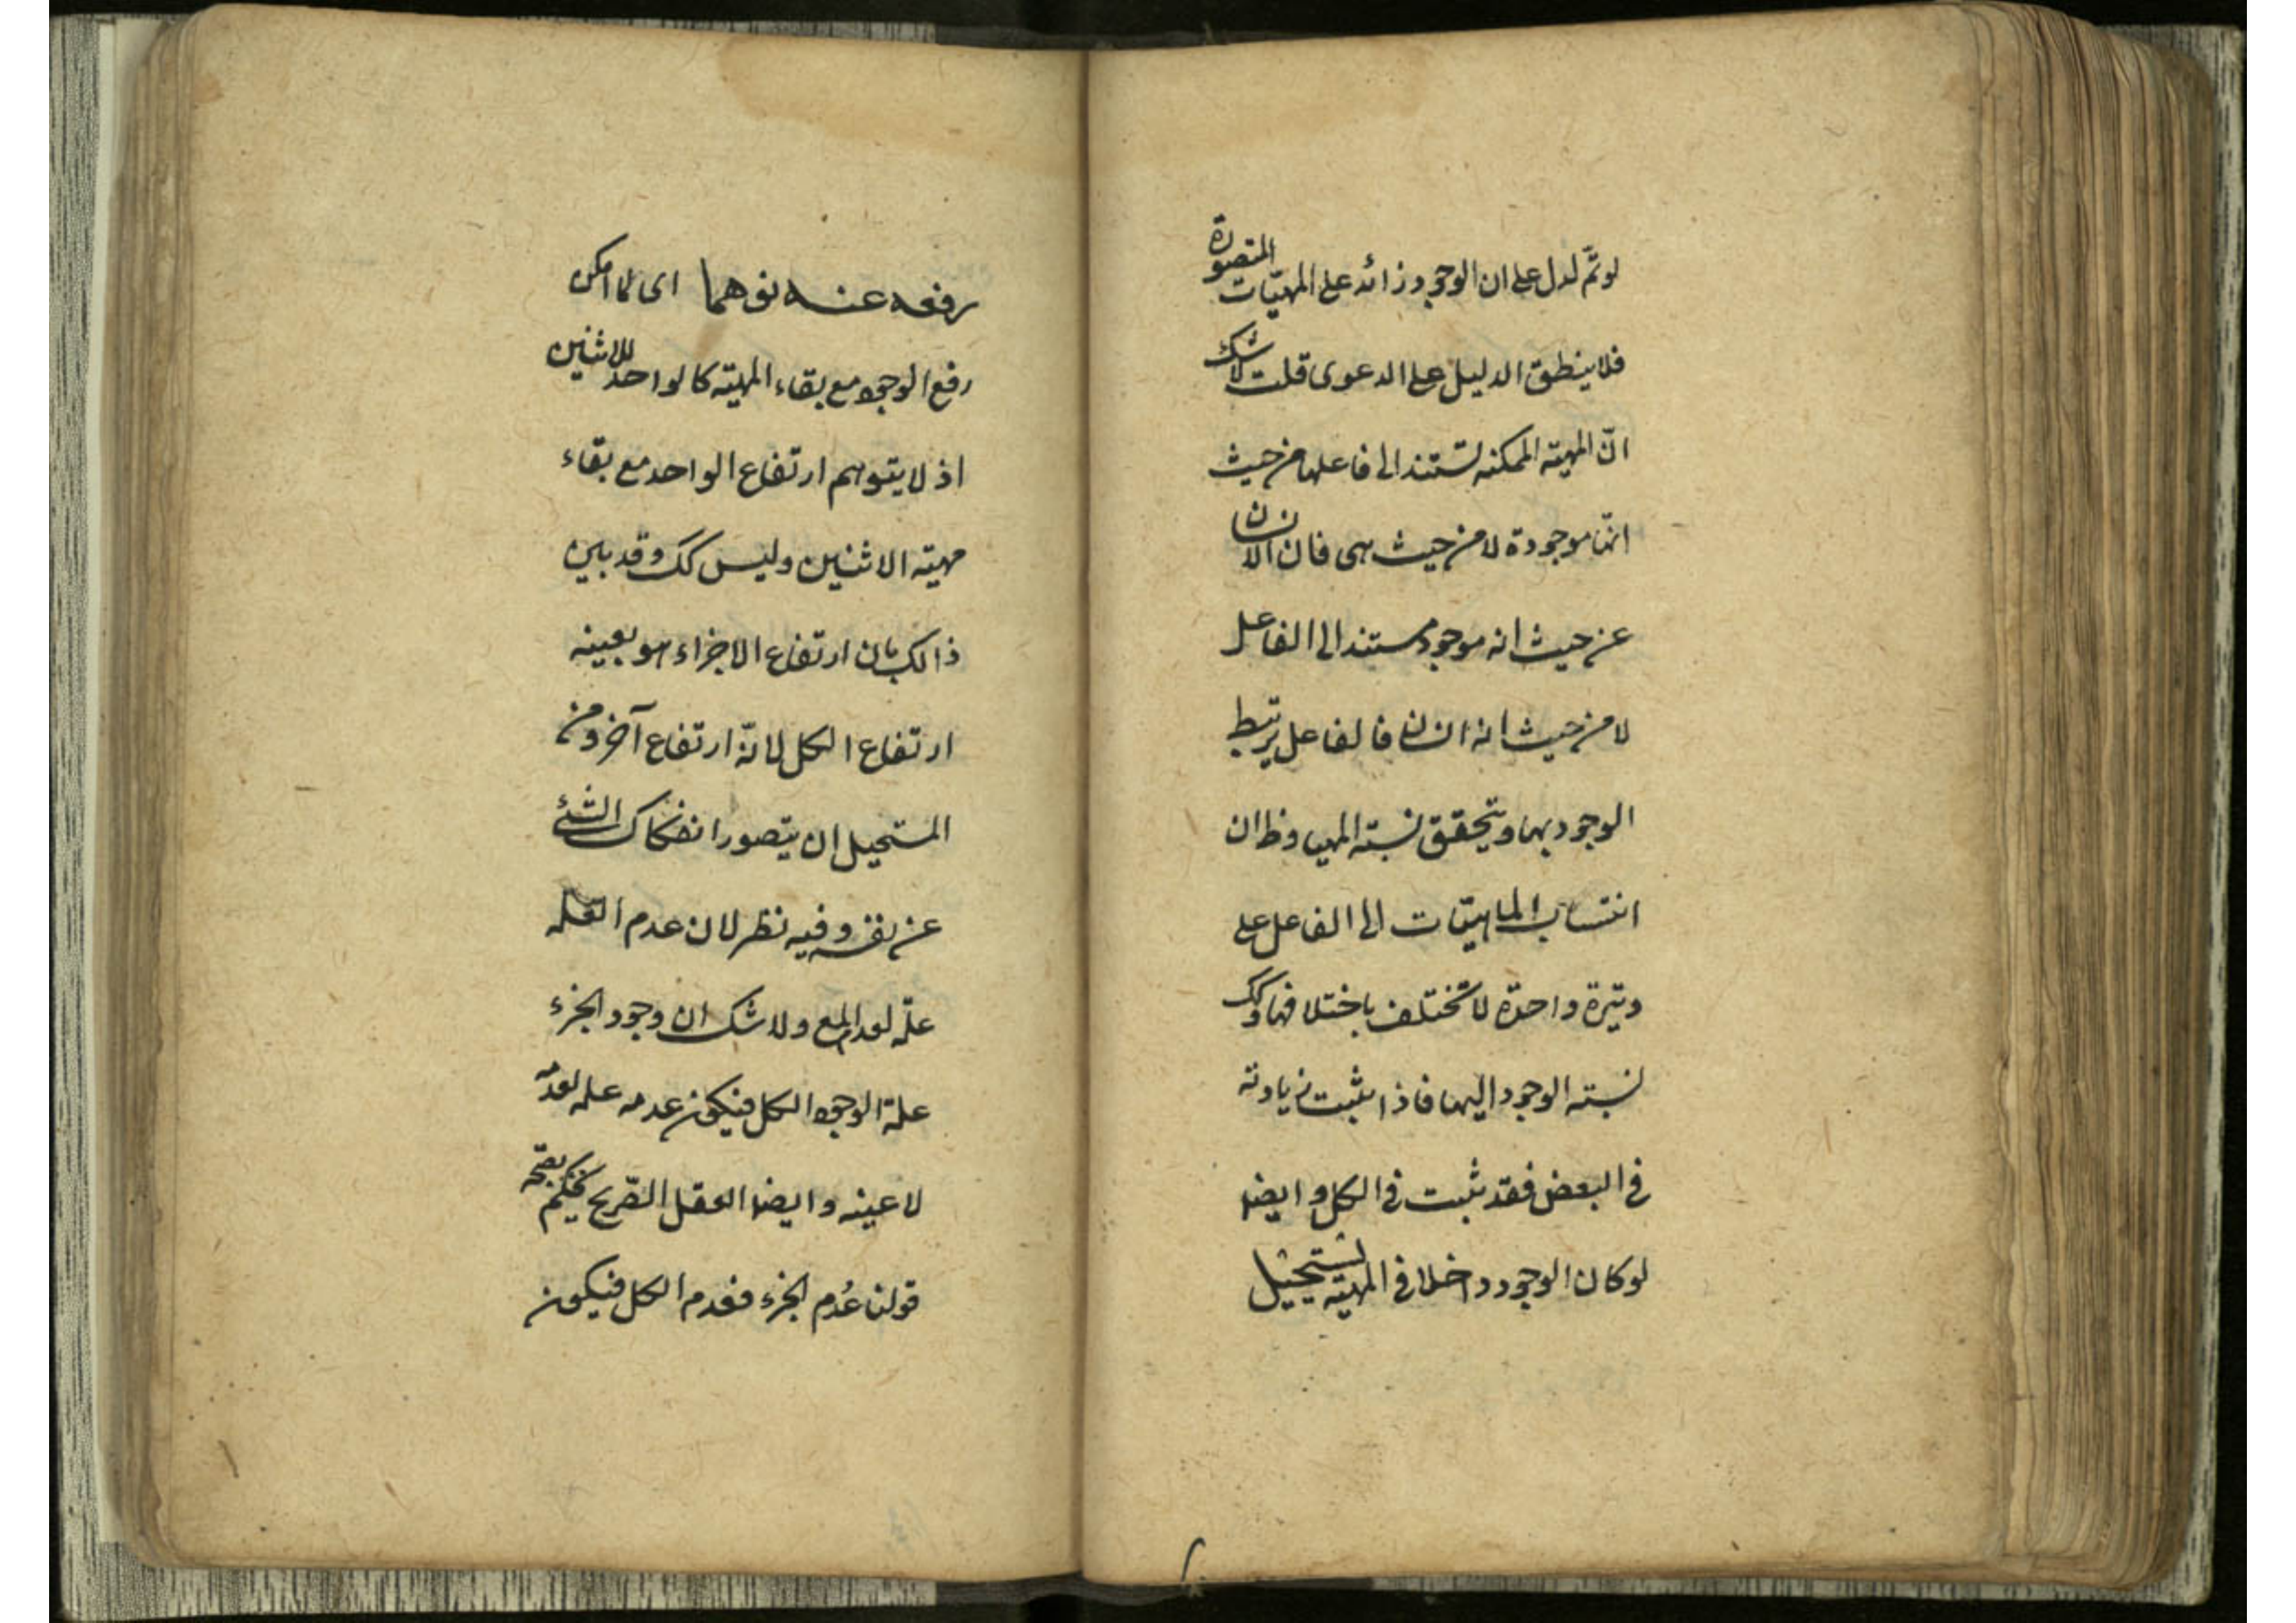 لو تمّ لدل على ان الوجود زائد على المهيّات المتصورة
فلا ينطبق الدليل على الدعوى قلت لا شك
انّ المهية الممكنه تستند الى فاعلها من حيث
انها موجودة لا من حيث هى فان الانسان
من حيث انه موجود مستند الى الفاعل
لا من حيث انه انسان فالفاعل يربط
الوجود بها ويتحقق نسبته اليها وظ ان
انتساب الماهيّات الى الفاعل على
وتيرة واحدة لا تختلف باختلافها وكك
نسبته الوجود اليها فاذا ثبت زيادته
فى البعض فقد ثبت فى الكل وايضا
لو كان الوجود داخلا فى المهية لستحيل
رفعه عنه توهما اى لما امكن
رفع الوجود مع بقاء المهيّة كالواحد للاثنين
اذ لا يتوهم ارتفاع الواحد مع بقاء
مهيته الاثنين وليس كك وقد بين
ذالك بان ارتفاع الاجزاء هو بعينه
ارتفاع الكل لا انّه ارتفاع آخر ومن
المستحيل ان يتصور انفكاك الشئ
عن نفسه وفيه نظر لان عدم العله
علّه لعدم المع ولا شك ان وجود الجزء
علة الوجود الكل فيكون عدمه عله لعدمه
لا عينه وايضا العقل الصّريح يحكم بصحّه
قولنا عُدم الجزء فعدم الكل فيكون